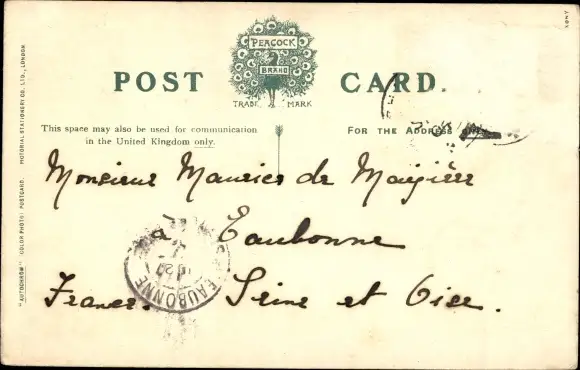 PEACOCK
BRAND
POST CARD.
TRADE MARK
This space may also be used for communication
in the United Kingdom only.
FOR THE ADDRESS ONLY.
Monsieur Maurice de
à Eaubonne
France. Seine et Oise.
EAUBONNE
"AUTOCHROM" (COLOR PHOTO) POSTCARD. PICTORIAL STATIONERY CO. LTD., LONDON